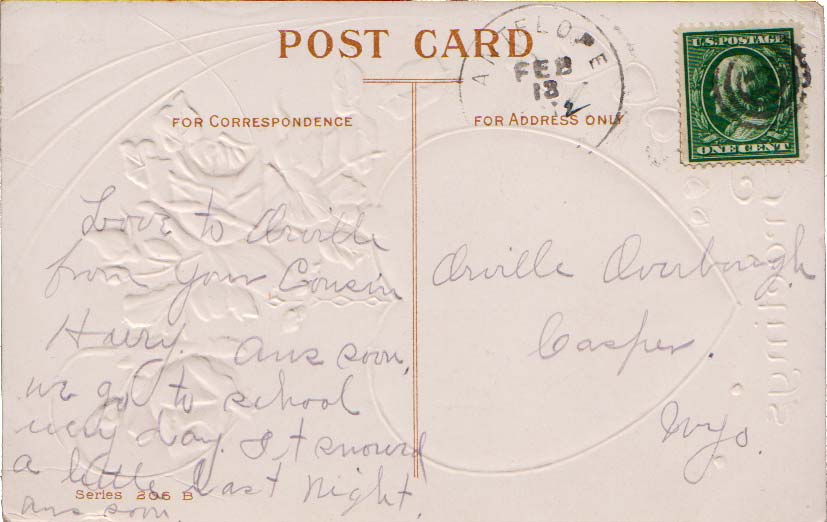 POST CARD
FOR CORRESPONDENCE
Love to Orville
from your Cousin
Harry. Ans soon,
we go to school
every day. It snowed
a little last night.
ans soon.
Series 206 B
FOR ADDRESS ONLY
Orville Overbaugh
Casper.
Wyo.
ANTELOPE
FEB
18
U.S. POSTAGE
ONE CENT
Greetings